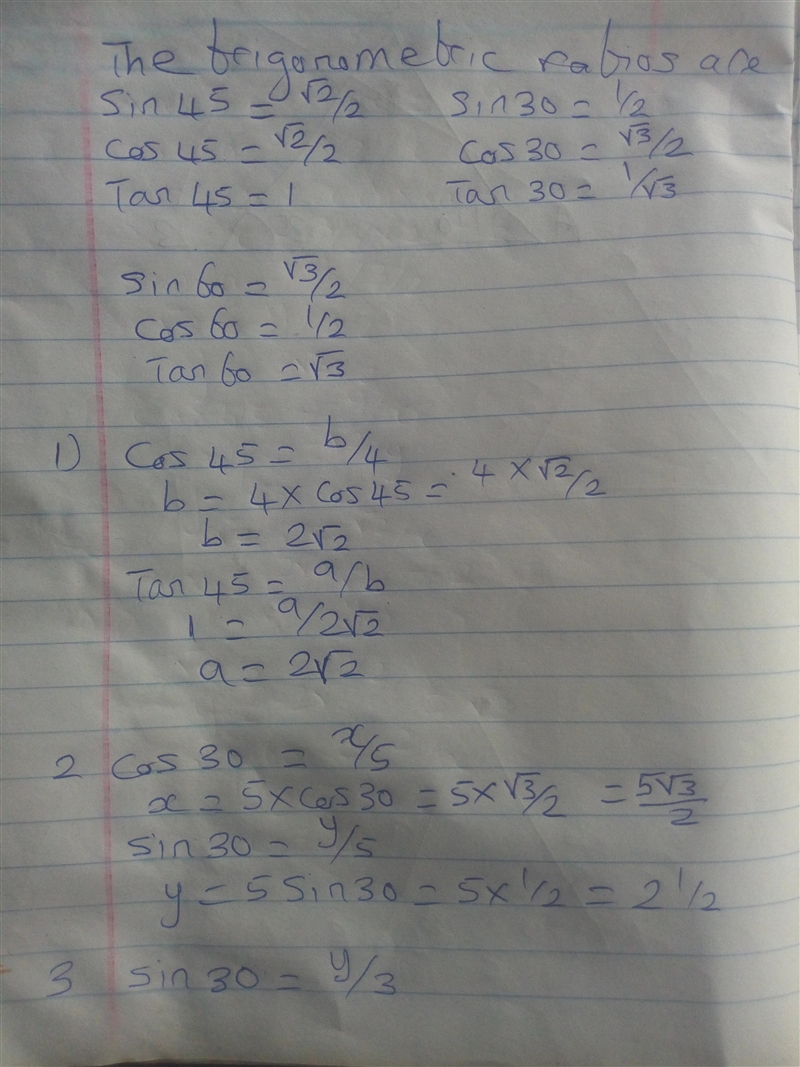 The trigonometric ratios are
Sin 45 = √2/2 sin 30 = 1/2
Cos 45 = √2/2 Cos 30 = √3/2
Tan 45 = 1 Tan 30 = 1/√3
Sin 60 = √3/2
Cos 60 = 1/2
Tan 60 = √3
1) Cos 45 = b/4
b = 4 × Cos 45 = 4 × √2/2
b = 2√2
Tan 45 = a/b
1 = a/2√2
a = 2√2
2 Cos 30 = x/5
x = 5 × Cos 30 = 5 × √3/2 = 5√3/2
Sin 30 = y/5
y = 5 Sin 30 = 5 × 1/2 = 2 1/2
3 Sin 30 = y/3